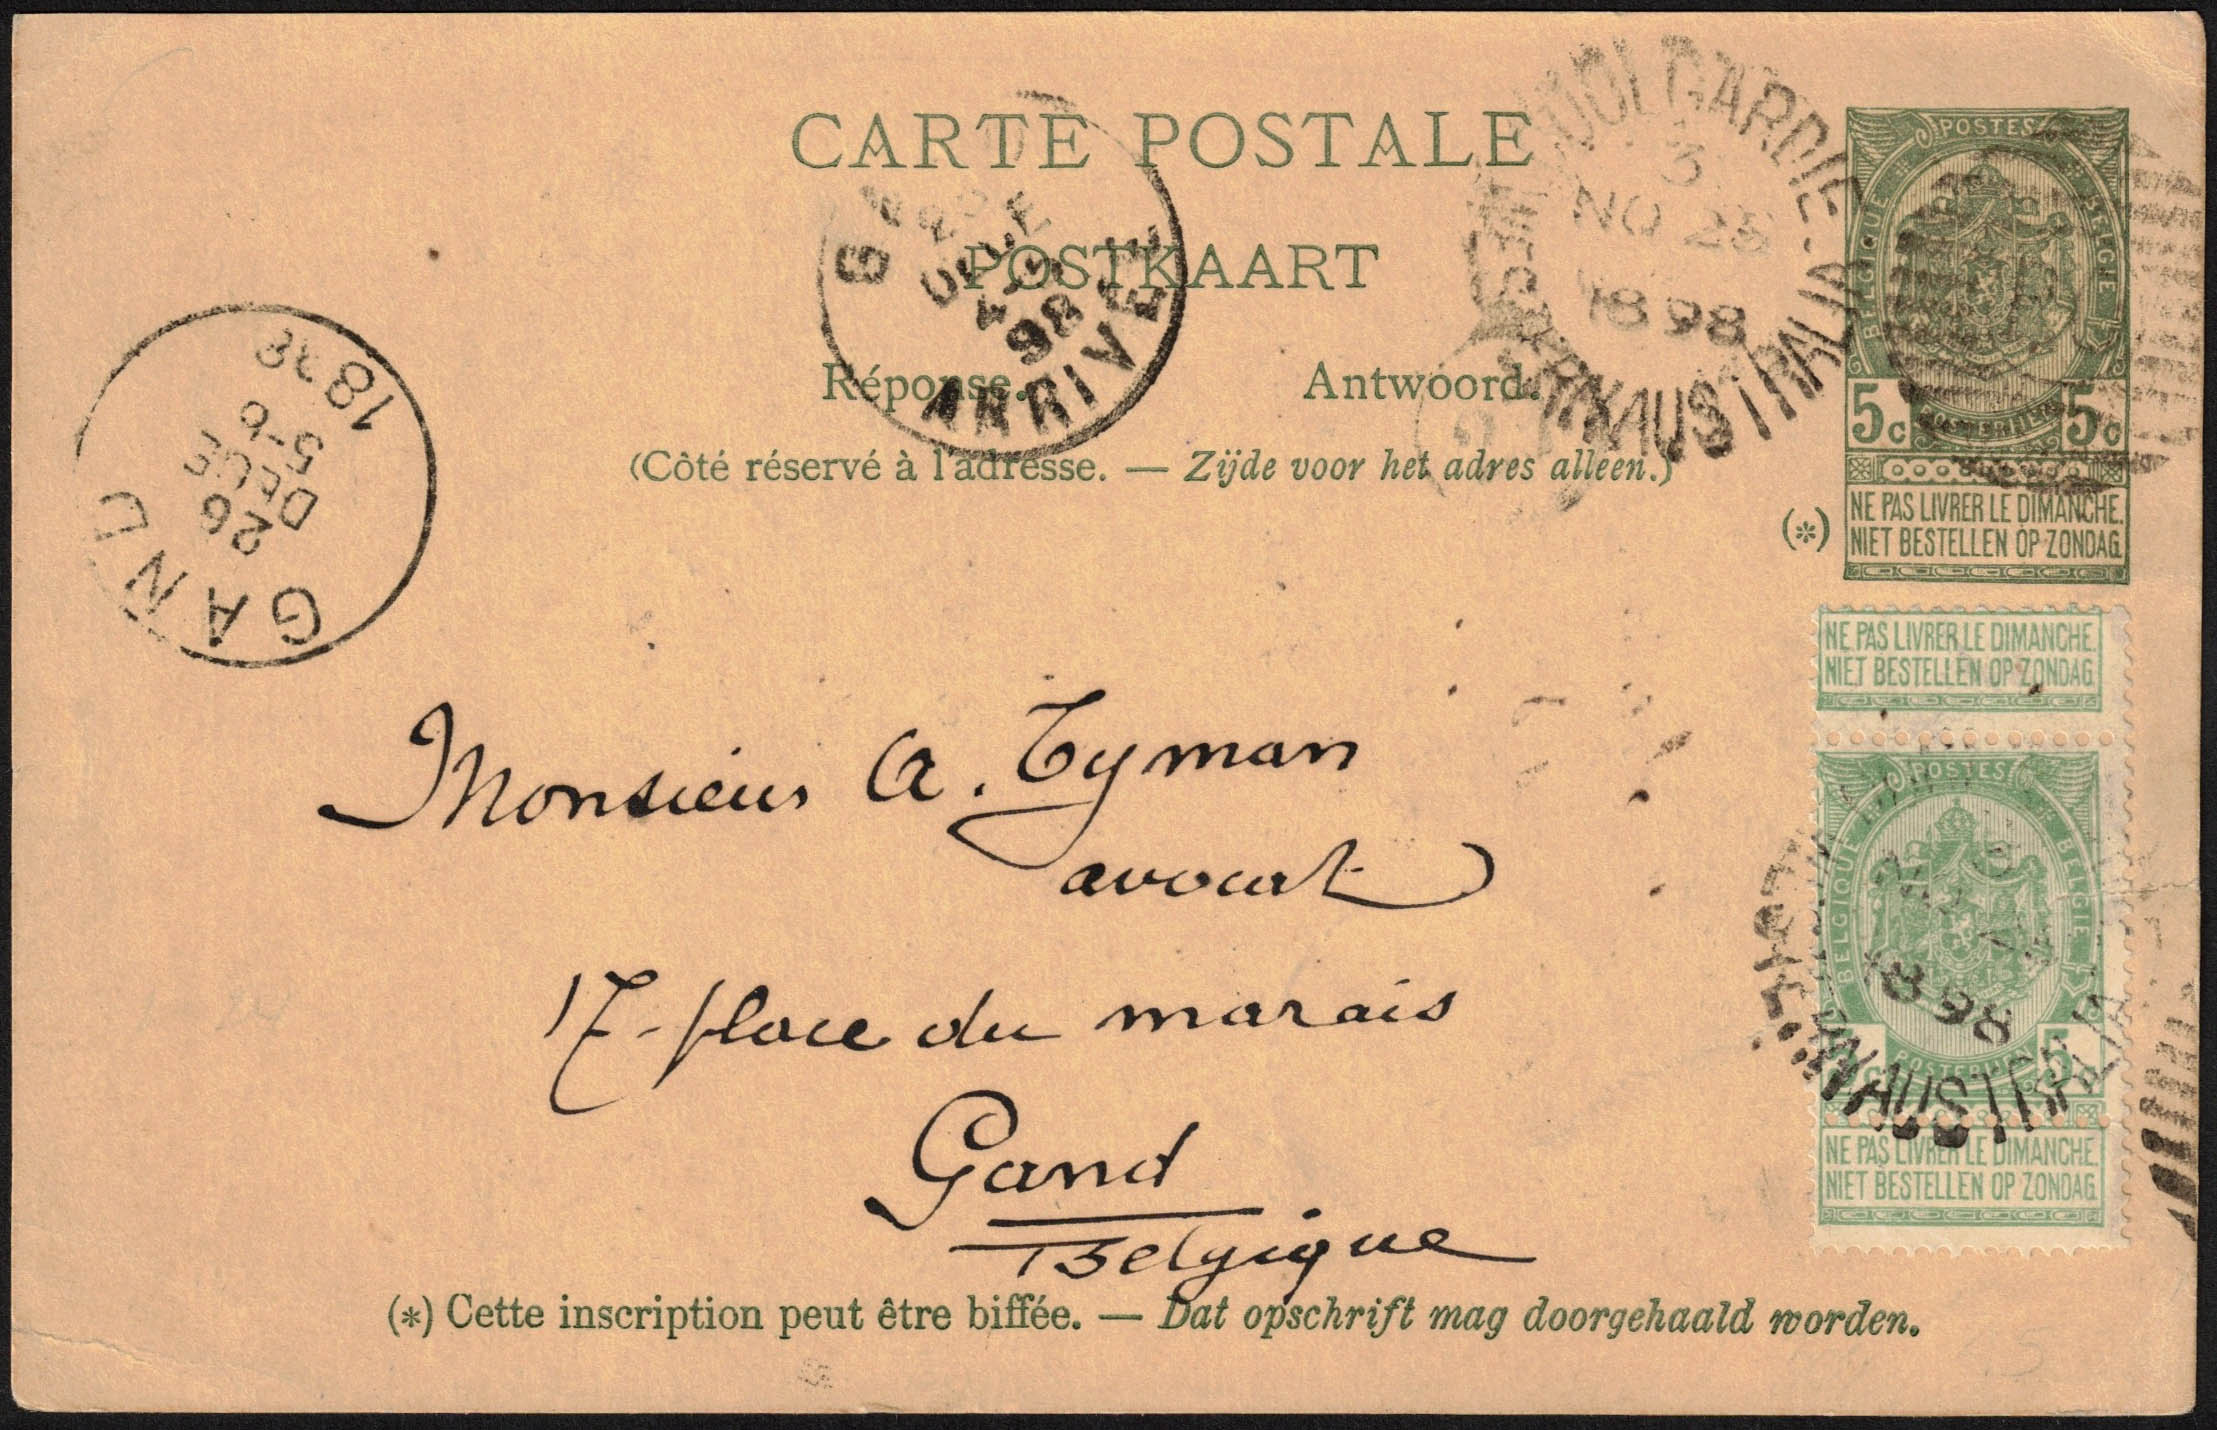 CARTE POSTALE
POSTKAART
Réponse. Antwoord.
(Côté réservé à l'adresse. — Zijde voor het adres alleen.)
COOLGARDIE
3
NO 23
1898
WESTERN AUSTRALIA
POSTES
BELGIQUE BELGIE
5c 5c
POSTERIJEN
(*) NE PAS LIVRER LE DIMANCHE.
NIET BESTELLEN OP ZONDAG
4-5
98
ARRIVEE
1898
5-6
26
GAND
NE PAS LIVRER LE DIMANCHE.
NIET BESTELLEN OP ZONDAG
POSTES
BELGIQUE BELGIE
1898
AUSTRALIA
5c
POSTERIJEN
NE PAS LIVRER LE DIMANCHE.
NIET BESTELLEN OP ZONDAG
Monsieur A. Tyman
avocat
17 place du marais
Gand
Belgique
(*) Cette inscription peut être biffée. — Dat opschrift mag doorgehaald worden.